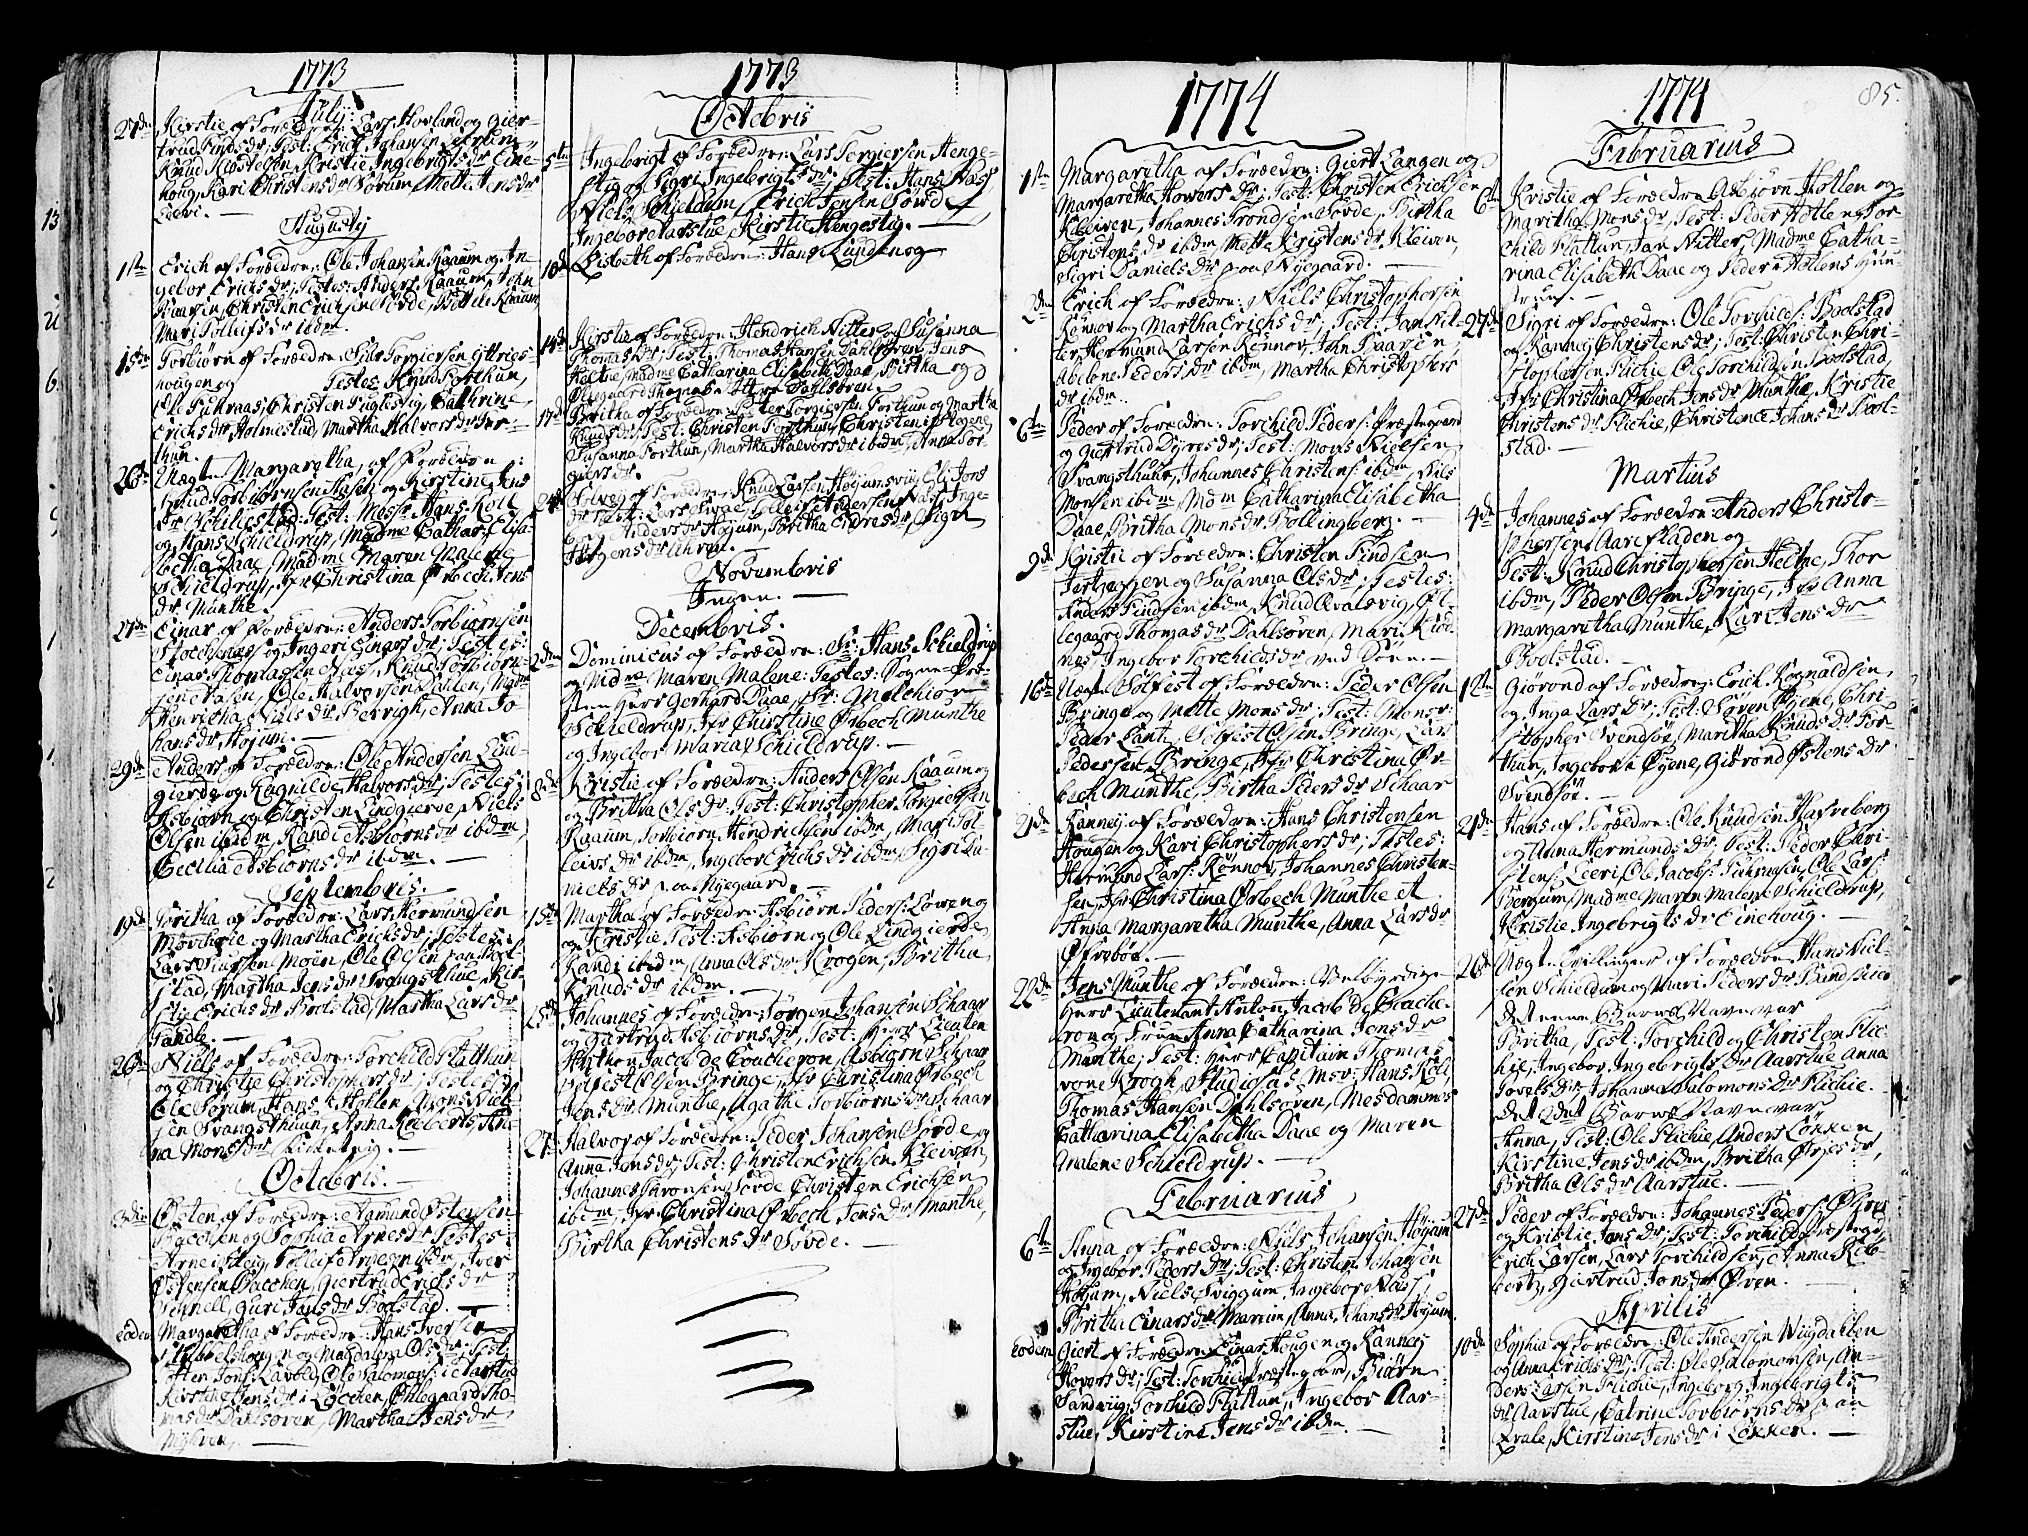 1773
July:
27de Kirstie af Forældre: Lars Hovland og Gier-
trud Findsdr, Test: Erich Johansen
Knud Kristie Ingebrigtsdr Eine-
houg, Kari Christensdr Sørum, Mette Jensdr
Leeri. —
Augusty
1ste Erich af Forældre: Ole Johansen Kaaum og In-
gebor Erichsdr, Testes: Anders Kaaum, John
Christen Erichsen Sørde, Kaaum,
Mari Tolleifsdr ibdm.
15de Torbiørn af Forældre: Siur Torgiersen Gttries-
hougen og Testes Knud Forthun,
Ole Fuhraas, Christen Fuglestig, Cathrine
Erichsdr Holmestad, Martha Halvorsdr For-
thun.
26de Margaretha, af Forældre:
Knud Torbiørnsen og Kirstine Jens
dr Test: Monsr Hans Koll
og Hans Schieldrup, Madme Cathar: Elisa-
betha Daae, Madme Maren Malene
Schieldrup, Jfr Christina Ørbech Jens
dr Munthe.
27de Einar af Forældre: Anders Torbiørnsen
og Ingeri Einarsdr; Testes:
Einar Thomassen Næs, Knud Torbiørn-
sen Ole Halvorsen Dahlen, Madme
Henricha Nielsdr Berrigh, Anna Jo-
hansdr Højum. —
29de Anders af Forældre: Ole Andersen Lind-
gierde og Ragnilde Halvorsdr, Testes;
Asbiørn og Christen Lindgierde, Niels
Olsen ibidm, Randi Asbiørnsdr ibdm,
Cecilia Asbiørnsdr ibdm. —
Septembris. —
19de Britha af Forældre: Lars Hermundsen
og Martha Erichsdr, Testes:
Lars Siursen Moen, Ole Olsen paa Bol-
stad, Martha Jensdr Svangsthue, Kir-
stie Erichsdr Bolstad, Martha Larsdr
Fandle. —
26de Niels af Forældre: Torchild Flatthun
og Christie Christophersdr; Testes:
Ole Sørum, Hans Hotlen, Mons Niel-
sen Svangsthuun, Anna Robberts, An-
na Monsdr Kirketeig. —
Octobris: —
3die Østen af Forældre: Aamund Østensen
Bacchen og Sophia Arnesdr Testes:
Arne Tolleif Arnesen ibdm, Iver
Østensen Bacchen, Giertrud Erichsdr
Snell, Guri Jensdr Bolstad. —
eodem Margaretha af Forældre: Hans Iversen
og Magdalena Olsdr; Test:
Ole Salomons: i Aarstue
Kirstie Jensdr i Løcchen, Øllegaard Tho-
masdr Dahlsøren, Martha Jensdr
Nyhren. —
1773
Octobris
5te Ingebrigt af Forældre: Lars Torgiersen Henge-
stig og Sigri Ingebrigtsdr Test: Hans Næss,
Niels Schieldum, Erich Jensen Sørde
Ingebor Aarstue, Kirstie Hengestig. —
10de Lisbeth af Forældre: Hans Lunden og
14de Kirstie af Forældre: Hendrich Nitter og Susanna
Thomasdr; Test: Thomas Hansen Dahlsøren, Jens
Heltne, Madme Catharina Elisabeth Daae, Birtha og
Øllegaard Thomas døttre Dahlsøren.
17de Britha af Forældre: Peter Torgiersen Forthun og Martha
Knudsdr; Test: Christen Forthun, Christen
Susanna Forthun, Martha Halvorsdr ibdm, Anna Tor-
giersdr.
24de Solveg af Forældre: Knud Larssen Højumsvig Eli Jons
dr Test: Lars Tolleif Andersen Næs, Inge-
bor Andersdr Højum, Britha Endresdr, Sigri
Jørgensdr Uhren.
Novembris
Ingen. —
Decembris.
2den Dominicus af Forældre: Sr: Hans Schieldrup
og Madme Maren Malene: Testes: Sogne-Præ-
sten Herr Gerhard Daae, Sr: Melchior
Schieldrup, Jfr Christine Ørbech Munthe
og Ingebor Maria Schieldrup. —
8de Kristie af Forældre: Anders Olsen Kaaum og
Britha Olsdr; Test: Christopher Torgiersen
Kaaum, Torbiørn Hindrichsen ibdm, Mari Tol-
leivsdr ibdm, Ingebor Erichsdr ibdm, Sigri Da-
nielsdr paa Nyegaard. —
15de Martha af Forældre: Asbiørn Peders: Løven og
og Kristie Test: Asbiørn og Ole Lindgierde,
Randi ibidm, Anna Olsdr Krogen, Britha
Knudsdr ibdm. —
25de Johannes af Forældre: Jørgen Johansen Schaar
og Gartrud Asbiørnsdr, Test: Herr Lieuten
Anthon Jacob de Coucheron, Asbiørn Schaar
Solfest Olsen Bringe, Jfr Christina Ørbech
Jensdr Munthe, Agathe Torbiørnsdr Schaar
27de Halvor af Forældre: Peder Johansen Sørde og
Anna Jensdr; Test: Christen Erichsen Kleiven,
Johannes Thronsen Sørde, Christen Erichsen
ibdm, Jfr Christina Ørbech Jensdr Munthe,
Birtha Christensdr Sørde. —
1774
1ste Margaretha af Forældre: Giert Langen og
Margaretha Howersdr; Test: Christen Erichsen
Kleiven, Johannes Trondsen Sørde, Birtha
Christensdr ibdm Mette Kristensdr Kleiven,
Sigri Danielsdr paa Nyegaard. —
2den Erich af Forældre: Niels Christophersen
Rønnov og Martha Erichsdr; Test: Jan Nit-
ter, Hermund Larsen Rønnov, John
Abelone Pedersdr ibdm, Martha Christophers
dr ibdm.
6te Peder af Forældre: Torchild Peders: Præstegaard
og Giertrud Dyresdr; Test: Mons Nielsen
Svangsthun, Johannes Christens: ibdm, Nils
Monsen ibdm, Mdm Catharina Elisabetha
Daae, Britha Monsdr Bollingberg. —
9de Kristie af Forældre: Christen Findsen
og Susanna Olsdr; Testes:
Anders Findsen ibdm, Knud Qvalevig, Øl-
legaard Thomasdr Dahlsøren, Mari Kiod-
nes, Ingebor Torchildsdr ved Søen. —
16de Nægt Solfest af Forældre: Peder Olsen
Bringe og Mette Monsdr; Test: Monsr
Peder Lantz, Solfest Olsen Bringe, Lars
Pedersen Bringe, Jfr Christina Ør-
bech Munthe, Birtha Pedersdr Schaar
21de Ranney af Forældre: Hans Christensen
Hougen og Kari Christophersdr; Testes:
Hermund Lars: Rønnov, Johannes Christen-
sen, Jfr Christina Ørbech Munthe et
Anna Margaretha Munthe, Anna Larsdr
Øfrebøe. —
22de Jens Munthe af Forældre: Velbyrdige
Herr Lieutenant Anton Jacob De Couche-
ron og Frue Anna Catharina Jensdr
Munthe; Test: Herr Capitain Thomas
vone Krogh, Studiosus Msr: Hans Koll,
Thomas Hansen Dahlsøren, Mesdammes
Catharina Elisabetha Daae og Maren
Malene Schieldrup. —
Februarius
6te Anna af Forældre: Niels Johansen Højum
og Ingebor Pedersdr; Test: Christen Johansen
Højum, Niels Sviggum, Ingebor Næss,
Britha Einarsdr Marium, Anna Johansdr Højum
eodem Giert af Forældre: Einar Hougen og Ranney
Hoversdr; Test: Torchild Præstegaard, Biørn
Sandvig, Torchild Flattum, Ingebor Aar-
stue, Kirstine Jensdr ibdm. —
1774
85.
Februarius
6te Kristie af Forældre Asbiørn Hotlen og
Maritha Monsdr, Test: Peder Hotlen, Tor-
child Flattun, Jan Nitter, Madme Catha-
rina Elisabeth Daae og Peder Hotlens Huu-
strue. —
27de Sigri af Forældre: Ole Torchilds: Bolstad
og Ranney Christensdr; Test: Christen Chri-
stophersen Flichie, Ole Torchildsen Bolstad,
Jfr Christina Ørbech Jensdr Munthe, Kristie
Christensdr Flichie, Christence Johansdr Bol-
stad. —
Martius
4de Johannes af Forældre: Anders Christo-
phersen Aarefladen og
Test: Knud Christophersen Heltne, Thor
ibdm, Peder Olsen Bringe, Jfr Anna
Margaretha Munthe, Kari Jensdr
Bolstad. —
Giørond af Forældre: Erich Rognaldsen
og Inga Larsdr; Test: Søren Øyene, Chri-
stopher Svendsøe, Maritha Knudsdr For-
thun, Ingebor Øyene, Giørond Østensdr
Svendsøe. —
21de Hans af Forældre: Ole Knudsen Hasveberg
og Anna Hermundsdr, Test: Peder Chri-
stens: Leeri Ole Jacobs: Ole Lars:
Bergum, Madme Maren Malene Schieldrup,
Kristie Ingebrigtsdr Einehoug. —
26de Nægt Tvillinger af Forældre Hans Niel-
sen Schieldum og Mari Pedersdr
det eene Barns Navn var
Britha, Test: Torchild og Christen Flic-
hie, Ingebor Ingebrigtsdr Aarstue Anna
Joensdr, Johanna Salomonsdr Flichie.
det 2det Barns Navn var
Anna, Test: Ole Flichie, Anders Løkken
Kirstine Jensdr ibdm, Britha Ørjesdr,
Britha Olsdr Aarstue. —
27de Peder af Forældre: Johannes Peders: Øhren
og Kristie Jensdr; Test: Torchild Præstegd,
Erich Larsen, Lars Torchildsen, Anna Rob-
bertz, Giertrud Jensdr Øren. —
Aprilis
10de Sophia af Forældre: Ole Andersen Wigdahlen
og Anna Erichsdr: Test: Ole Salomonsen, An-
ders Larsen Flichie, Ingeborg Ingebrigts
dr Aarstue, Catrine Torbiørnsdr paa
Qvale, Kirstine Jensdr i Løkken. —